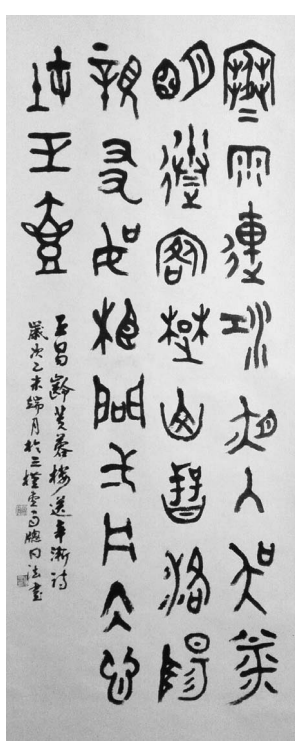 寒雨連江夜入吳平
明送客楚山孤洛陽
親友如相問一片冰心
在玉壺
王昌齡芙蓉樓送辛漸詩
歲次乙未端月於三樸牕同法書